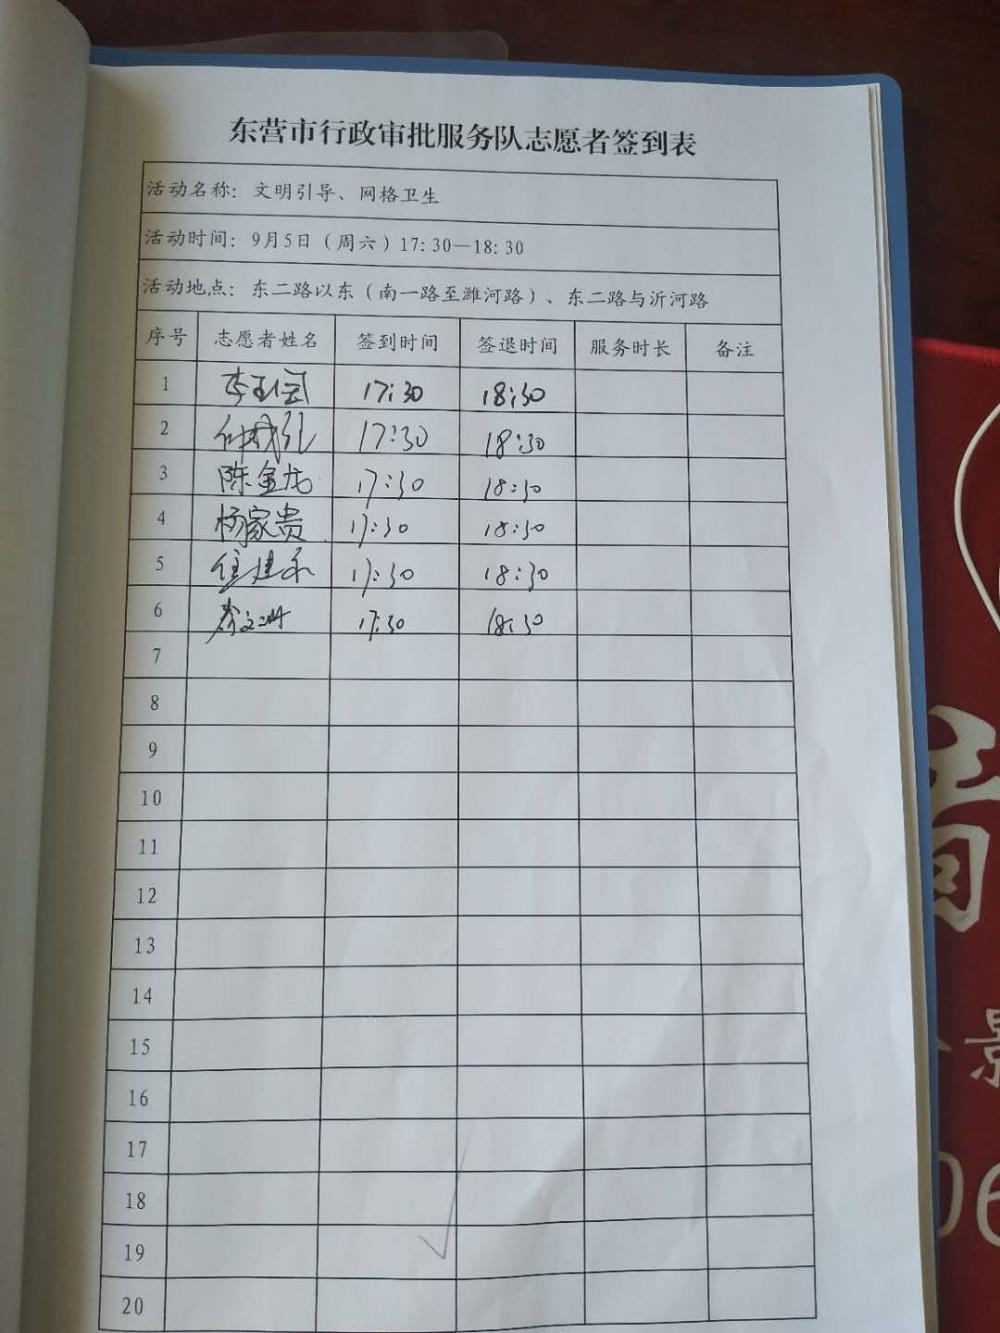 东营市行政审批服务队志愿者签到表
活动名称：文明引导、网格卫生
活动时间：9月5日（周六）17:30—18:30
活动地点：东二路以东（南一路至潍河路）、东二路与沂河路
序号 志愿者姓名 签到时间 签退时间 服务时长 备注
1 17:30 18:30
2 17:30 18:30
3 陈金龙 17:30 18:30
4 杨家贵 17:30 18:30
5 17:30 18:30
6 17:30 18:30
7
8
9
10
11
12
13
14
15
16
17
18
19
20